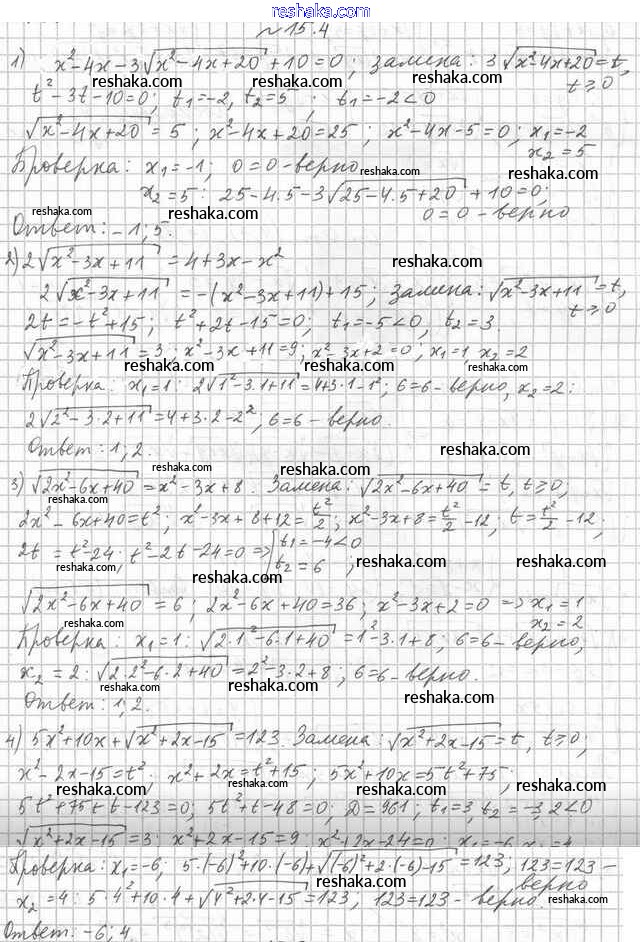 reshaka.com
№ 15.4
1) x²-4x-3√(x²-4x+20)+10=0; замена: 3√(x²-4x+20)=t,
t²-3t-10=0; t₁=-2, t₂=5; t₁=-2<0 t≥0
√(x²-4x+20)=5; x²-4x+20=25; x²-4x-5=0; x₁=-2
x₂=5
Проверка: x₁=-1; 0=0-верно
x₂=5: 25-4.5-3√(25-4.5+20)+10=0;
0=0-верно
Ответ: -1; 5.
2) 2√(x²-3x+11)=4+3x-x²
2√(x²-3x+11)=-(x²-3x+11)+15; замена: √(x²-3x+11)=t,
2t=-t²+15; t²+2t-15=0; t₁=-5<0, t₂=3. t≥0
√(x²-3x+11)=3; x²-3x+11=9; x²-3x+2=0; x₁=1, x₂=2
Проверка: x₁=1: 2√(1²-3.1+11)=4+3·1-1²; 6=6-верно, x₂=2:
2√(2²-3·2+11)=4+3·2-2², 6=6-верно.
Ответ: 1; 2.
3) √(2x²-6x+40)=x²-3x+8. Замена: √(2x²-6x+40)=t, t≥0;
2x²-6x+40=t²; x²-3x+8+12=t²/2; x²-3x+8=t²/2-12; t=t²/2-12;
2t=t²-24, t²-2t-24=0 => t₁=-4<0
t₂=6;
√(2x²-6x+40)=6; 2x²-6x+40=36; x²-3x+2=0 => x₁=1
x₂=2
Проверка: x₁=1: √(2·1²-6·1+40)=1²-3.1+8; 6=6-верно;
x₂=2: √(2·2²-6·2+40)=2²-3·2+8; 6=6-верно.
Ответ: 1; 2.
4) 5x²+10x+√(x²+2x-15)=123. Замена: √(x²+2x-15)=t, t≥0;
x²-2x-15=t²; x²+2x=t²+15; 5x²+10x=5t²+75;
5t²+75+t-123=0; 5t²+t-48=0; D=961; t₁=3, t₂=-3,2<0
√(x²+2x-15)=3; x²+2x-15=9; x²+2x-24=0; x₁=-6, x₂=4
Проверка: x₁=-6; 5·(-6)²+10·(-6)+√((-6)²+2·(-6)-15)=123; 123=123-
верно
x₂=4: 5·4²+10·4+√(4²+2·4-15)=123; 123=123-верно.
Ответ: -6; 4.